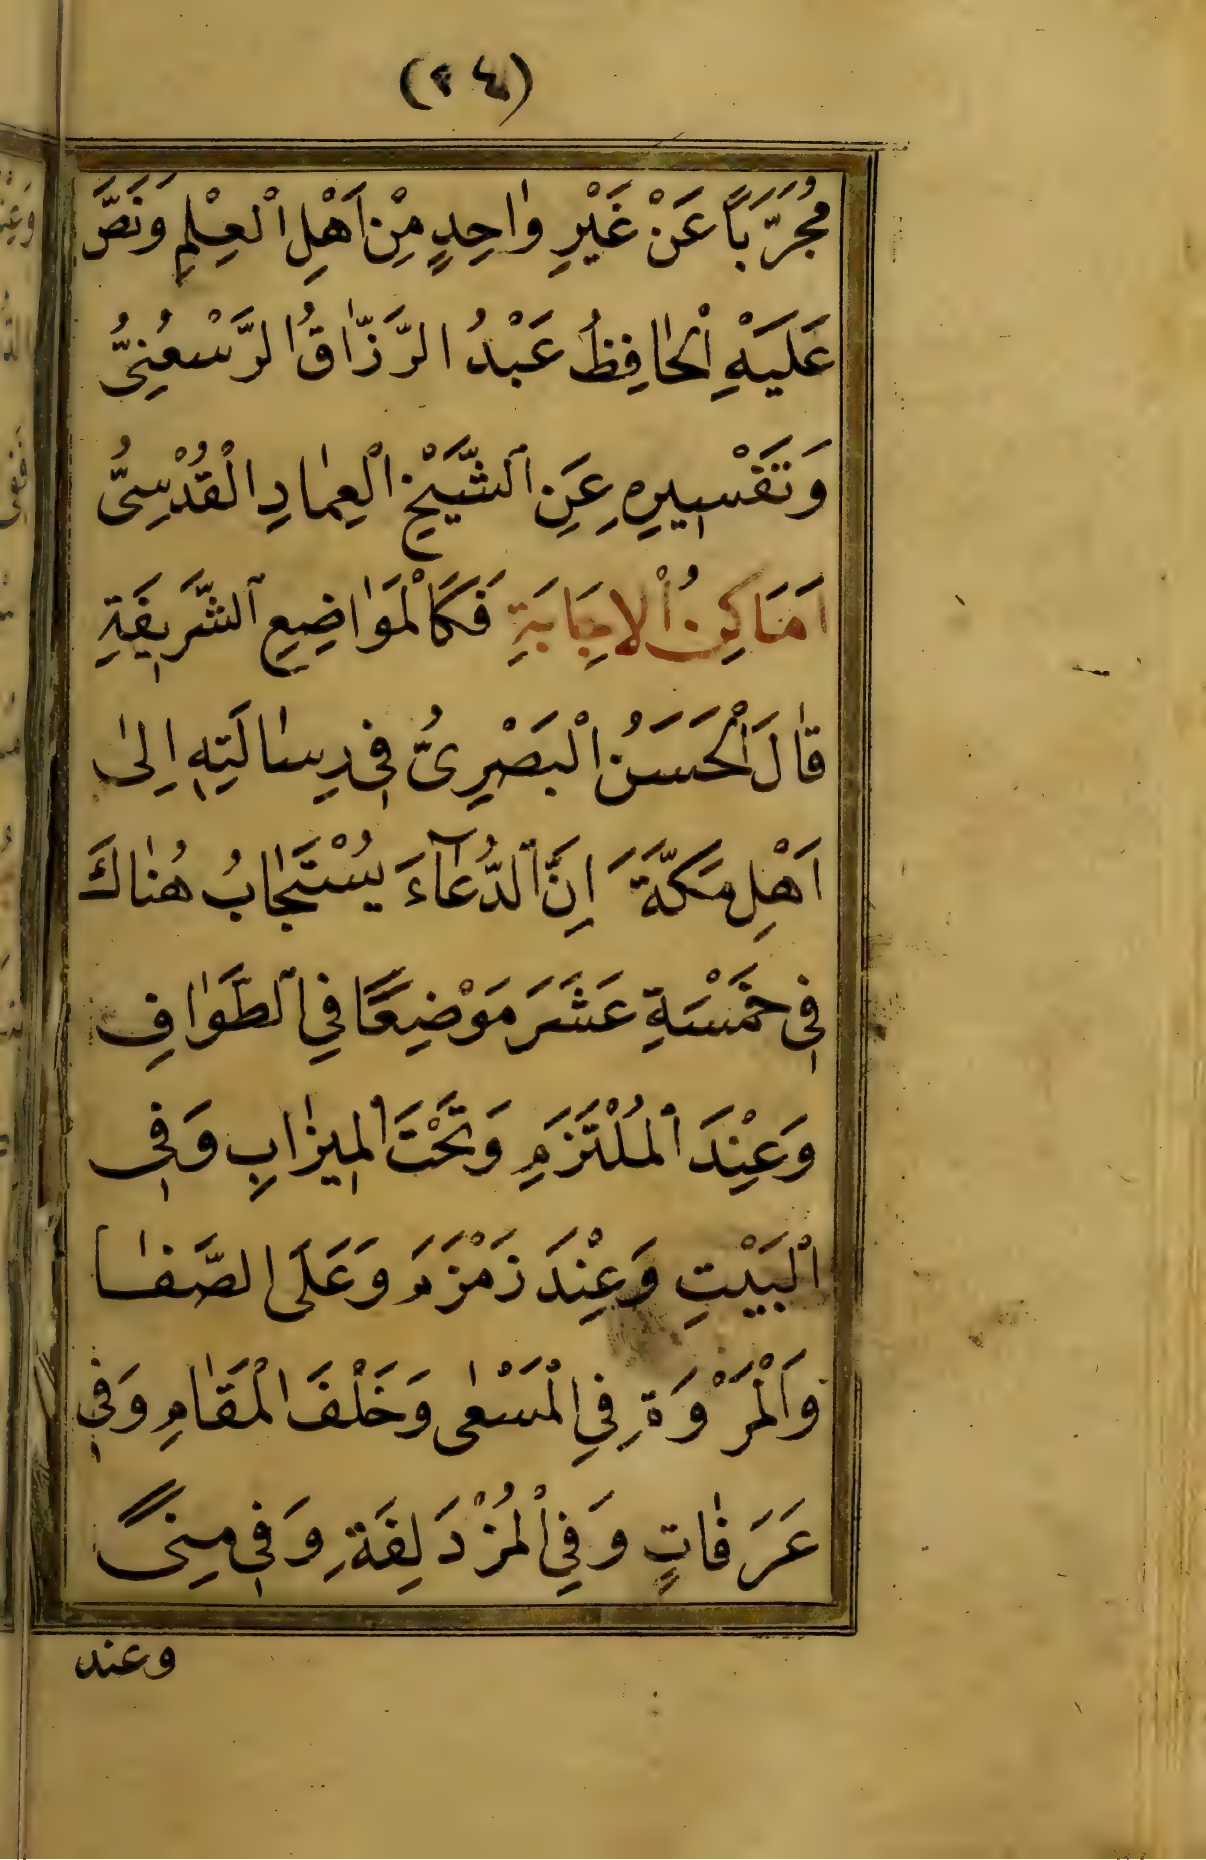 (٢٤)
مُجَرَّبًا عَنْ غَيْرِ وَاحِدٍ مِنْ اَهْلِ الْعِلْمِ وَنَصَّ
عَلَيْهِ الْحَافِظُ عَبْدُ الرَّزَّاقُ الرَّسْعُنِىُّ
وَتَفْسِيرِهِ عَنِ الشَّيْخِ الْعِمَادِ الْقُدْسِىُّ
اَمَاكِنُ الْاِجَابَةِ فَكَالْمَوَاضِعِ الشَّرِيفَةِ
قَالَ الْحَسَنُ الْبَصْرِىُّ فِى رِسَالَتِهِ اِلَى
اَهْلِ مَكَّةَ اِنَّ الدُّعَآءَ يُسْتَجَابُ هُنَاكَ
فِى خَمْسَةِ عَشَرَ مَوْضِعًا فِى الطَّوَافِ
وَعِنْدَ الْمُلْتَزَمِ وَتَحْتَ الْمِيزَابِ وَفِى
الْبَيْتِ وَعِنْدَ زَمْزَمَ وَعَلَى الصَّفَا
وَالْمَرْوَةِ فِى الْمَسْعٰى وَخَلْفَ الْمَقَامِ وَفِى
عَرَفَاتٍ وَفِى الْمُزْدَلِفَةِ وَفِى مِنًى
وعند